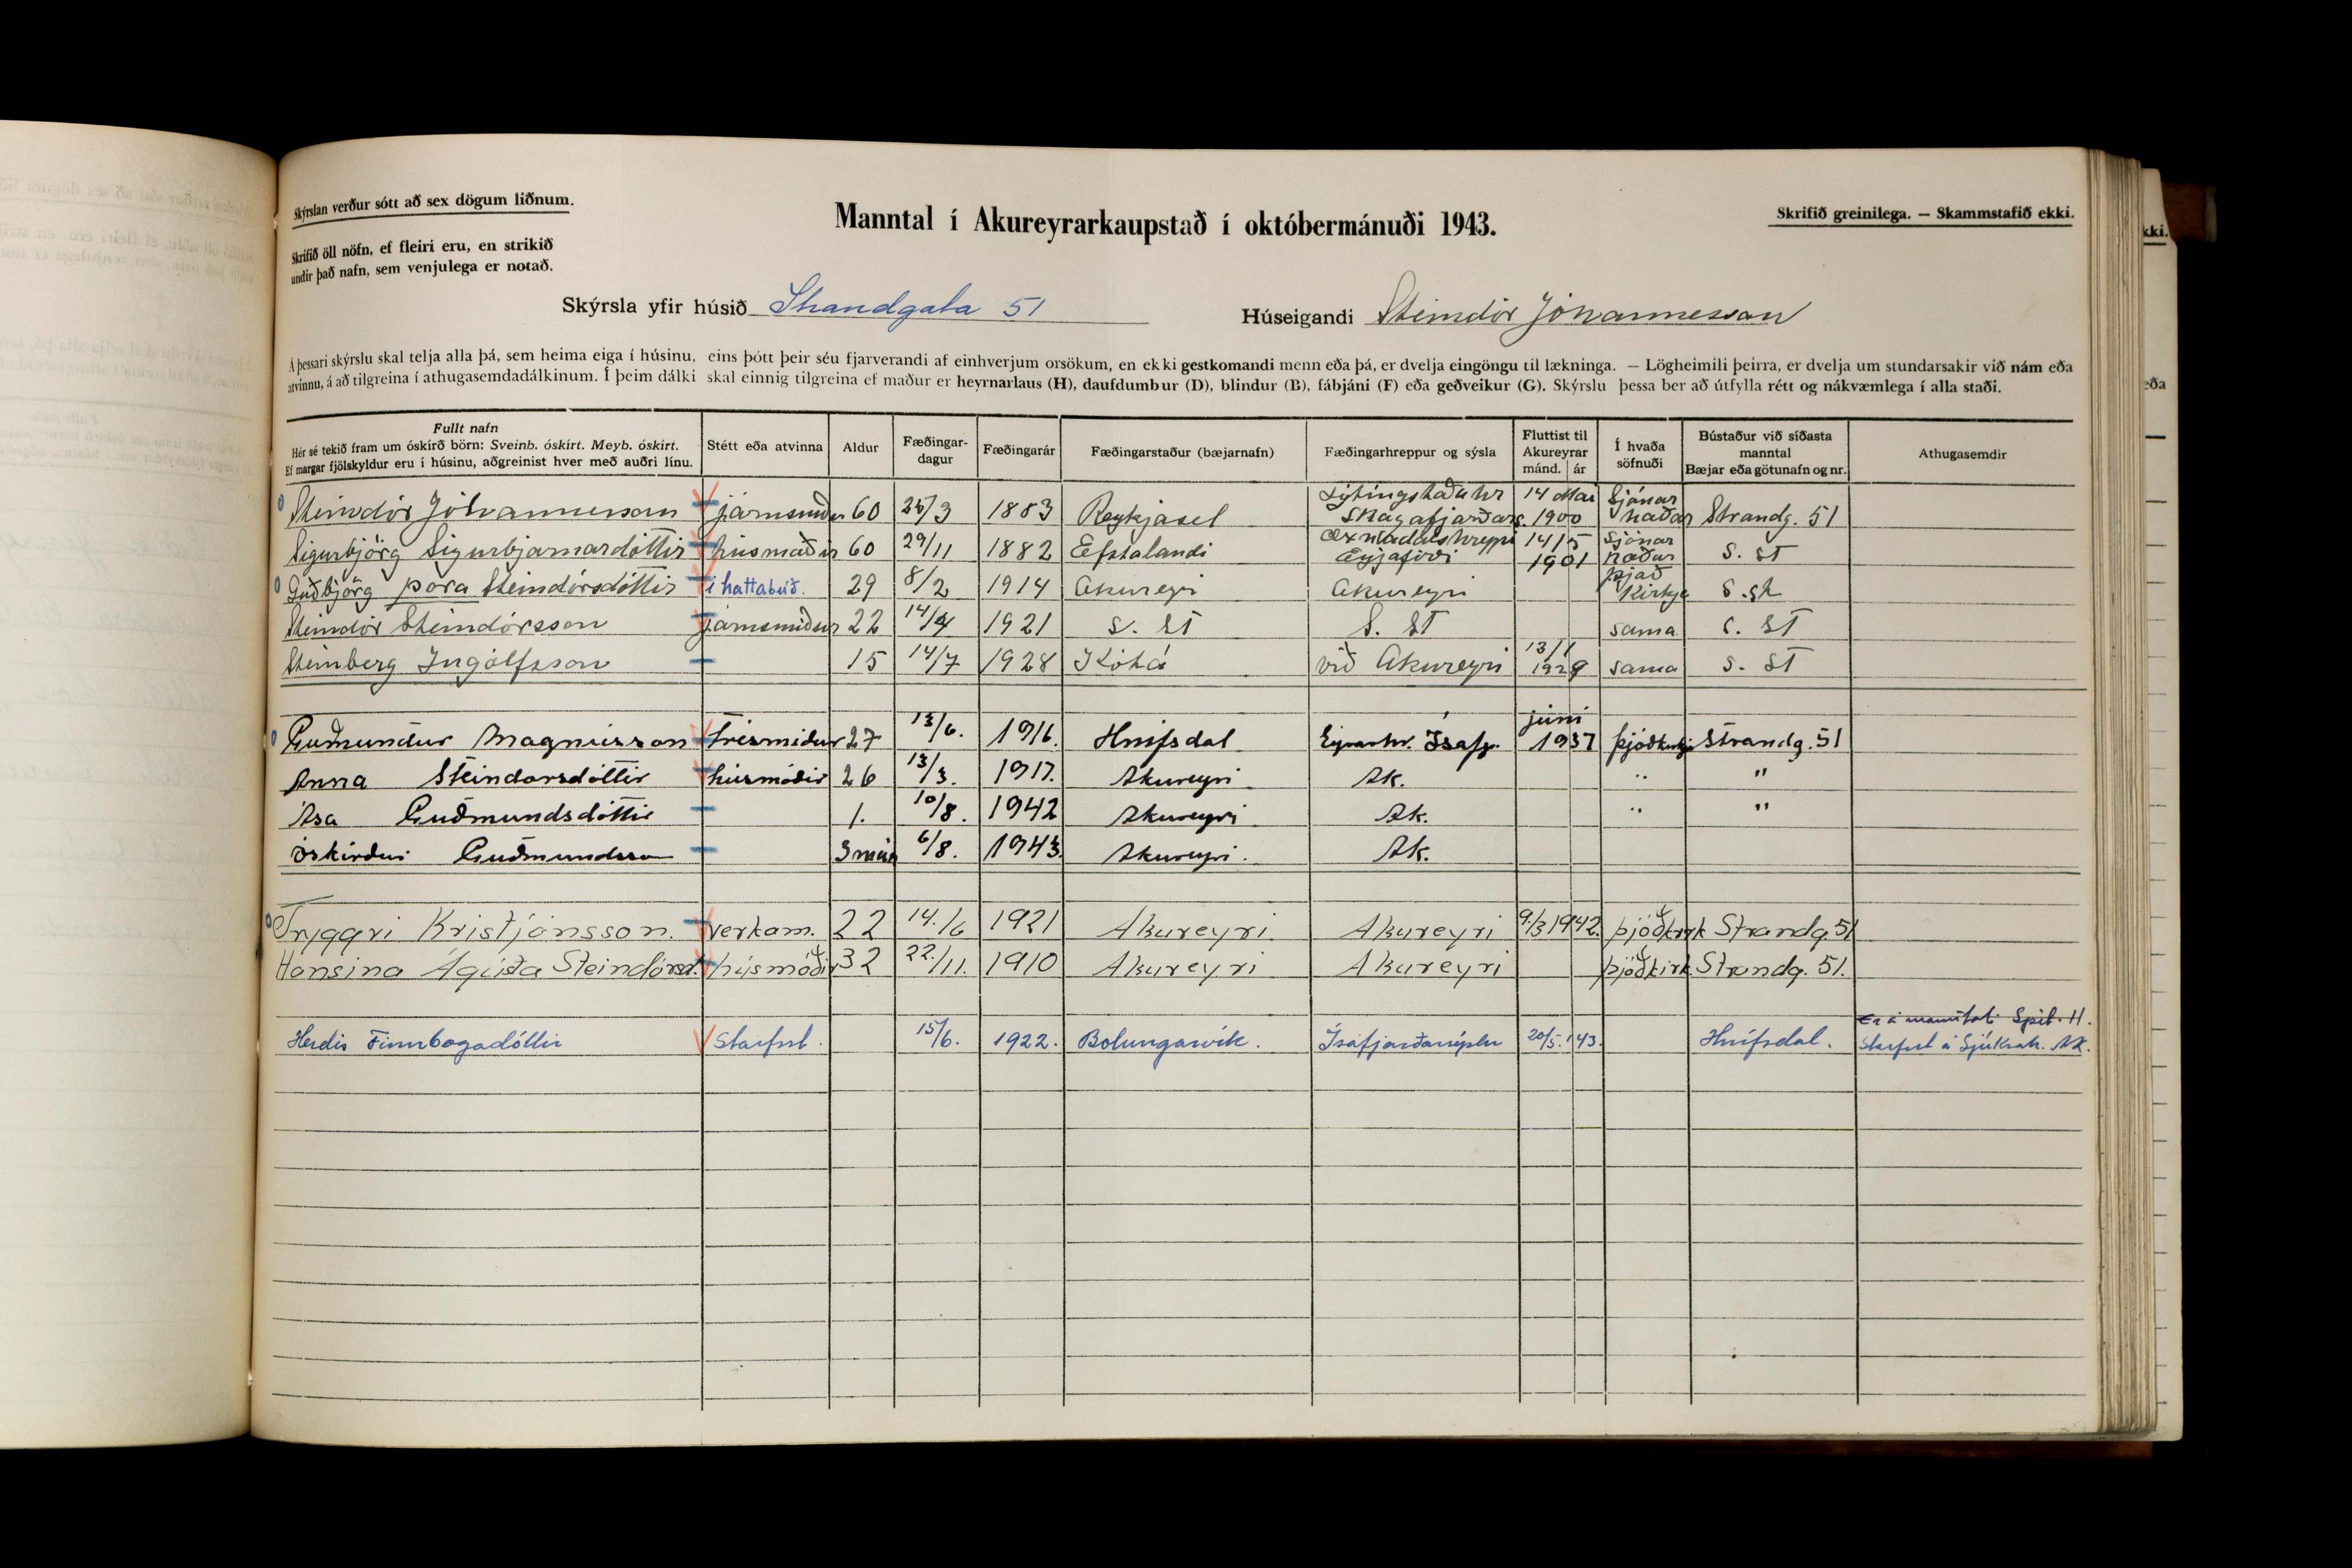 Skýrslan verður sótt að sex dögum liðnum.
Manntal í Akureyrarkaupstað í októbermánuði 1943.
Skrifið greinilega. — Skammstafið ekki.
Skrifið öll nöfn, ef fleiri eru, en strikið
undir það nafn, sem venjulega er notað.
Skýrsla yfir húsið Strandgata 51 Húseigandi Steindór Jóhannesson
Á þessari skýrslu skal telja alla þá, sem heima eiga í húsinu, eins þótt þeir séu fjarverandi af einhverjum orsökum, en ekki gestkomandi menn eða þá, er dvelja eingöngu til lækninga. — Lögheimili þeirra, er dvelja um stundarsakir við nám eða
atvinnu, á að tilgreina í athugasemdadálkinum. Í þeim dálki skal einnig tilgreina ef maður er heyrnarlaus (H), daufdumbur (D), blindur (B), fábjáni (F) eða geðveikur (G). Skýrslu þessa ber að útfylla rétt og nákvæmlega í alla staði.
Fullt nafn
Hér sé tekið fram um óskírð börn: Sveinb. óskírt. Meyb. óskírt.
Ef margar fjölskyldur eru í húsinu, aðgreinist hver með auðri línu.
Stétt eða atvinna
Aldur
Fæðingar-
dagur
Fæðingarár
Fæðingarstaður (bæjarnafn)
Fæðingarhreppur og sýsla
Fluttist til
Akureyrar
mánd. ár
Í hvaða
söfnuði
Bústaður við síðasta
manntal
Bæjar eða götunafn og nr.
Athugasemdir
Steindór Jóhannesson járnsmiður 60 1883 Reykjasel Skagafjarðars. 14 Mai 1900 Sjónar hæðar Strandg. 51
Sigurbjörg Sigurbjarnardóttir húsmæðir 60 29/11 1882 Efstalandi Öxnadalshreppi Eyjafirði 14/5 1901 Sjónar hæðar S. St
Guðbjörg Þóra Steindórsdóttir í hattabúð. 29 8/2 1914 Akureyri Akureyri Þjóð kirkja S. st
Steindór Steindórsson járnsmiður 22 1921 S. St S. St sama S. St
Steinberg Ingólfsson 15 14/7 1928 Kífsá við Akureyri 13/1 1929 sama S. St
Guðmundur Magnússon trésmiður 27 13/6. 1916. Hnífsdal Eyrarhr. Ísafj. júní 1937 þjóðkirkja Strandg. 51
Anna Steindórsdóttir húsmóðir 26 13/3. 1917. Akureyri Ak. " "
Ása Guðmundsdóttir 1. 10/8. 1942 Akureyri Ak. " "
óskírður Guðmundsson 3 mán 6/8. 1943. Akureyri. Ak.
Tryggvi Kristjánsson. verkam. 22 14./6 1921 Akureyri Akureyri 9./3 1942. þjóðkirk Strandg. 51
Hansína Ágústa Steindórsd. húsmóðir 32 22./11. 1910 Akureyri Akureyri þjóðkirk Strandg. 51.
Herdís Finnbogadóttir Starfsst. 15/6. 1922. Bolungarvík. Ísafjarðarsýslu 20/5. '43. Hnífsdal. Er á manntali Spít. H.
Starfsst á Sjúkrah. AK.